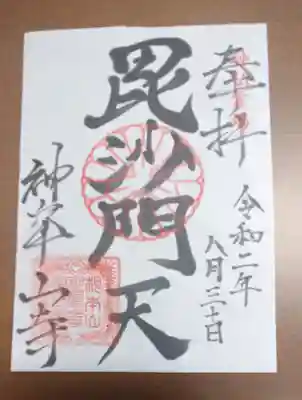 奉拝
令和二年
八月三十日
毘沙門天
神峯山寺